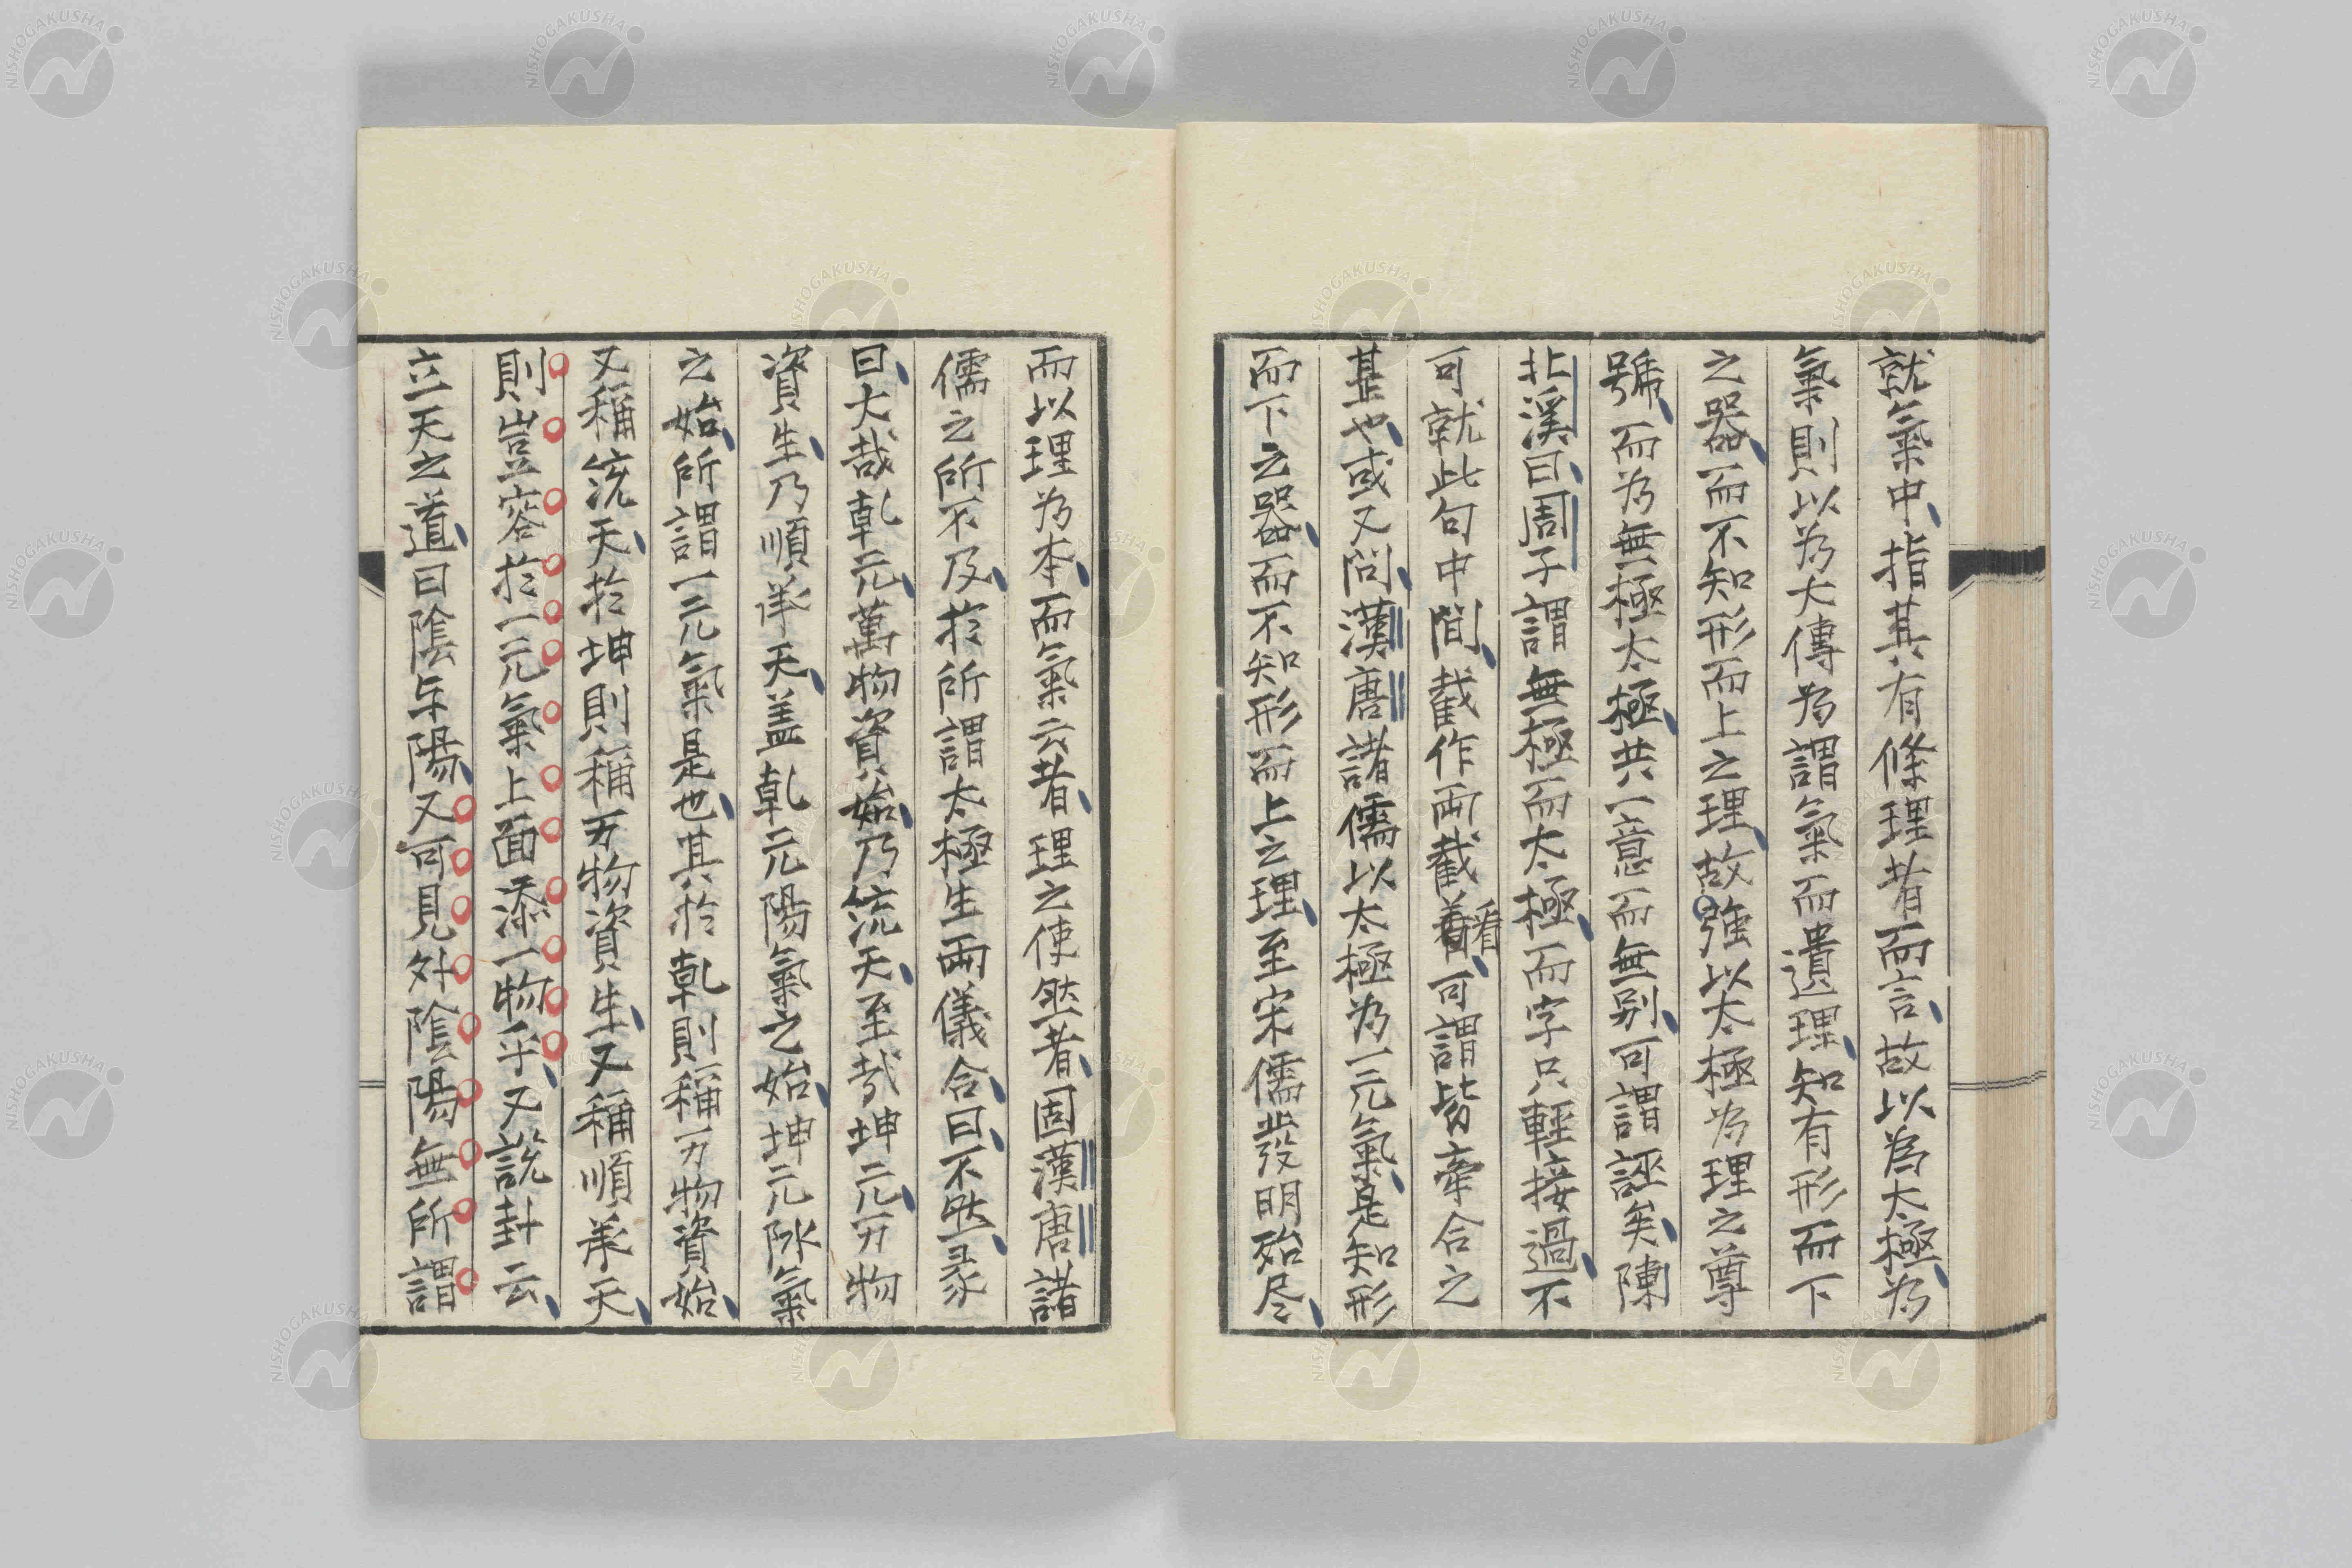 就氣中指其有條理者而言故以為太極為
氣則以為大傳為謂氣而遺理知有形而下
之器而不知形而上之理故強以太極為理之尊
號而為無極太極共一意而無別可謂誣矣陳
北溪曰周子謂無極而太極而字只輕接過不
可就此句中間截作兩截看可謂皆牽合之
甚也或又問漢唐諸儒以太極為一元氣是知形
而下之器而不知形而上之理至宋儒發明殆尽
而以理為本而氣云者理之使然者固漢唐諸
儒之所不及於所謂太極生兩儀合曰不然彖
曰大哉乾元萬物資始乃統天至哉坤元万物
資生乃順承天盖乾元陽氣之始坤元陰氣
之始所謂一元氣是也其於乾則稱万物資始
又稱統天於坤則稱万物資生又稱順承天
則豈容於一元氣上面添一物乎又說卦云
立天之道曰陰与陽又可見外陰陽無所謂
NISHOGAKUSHA